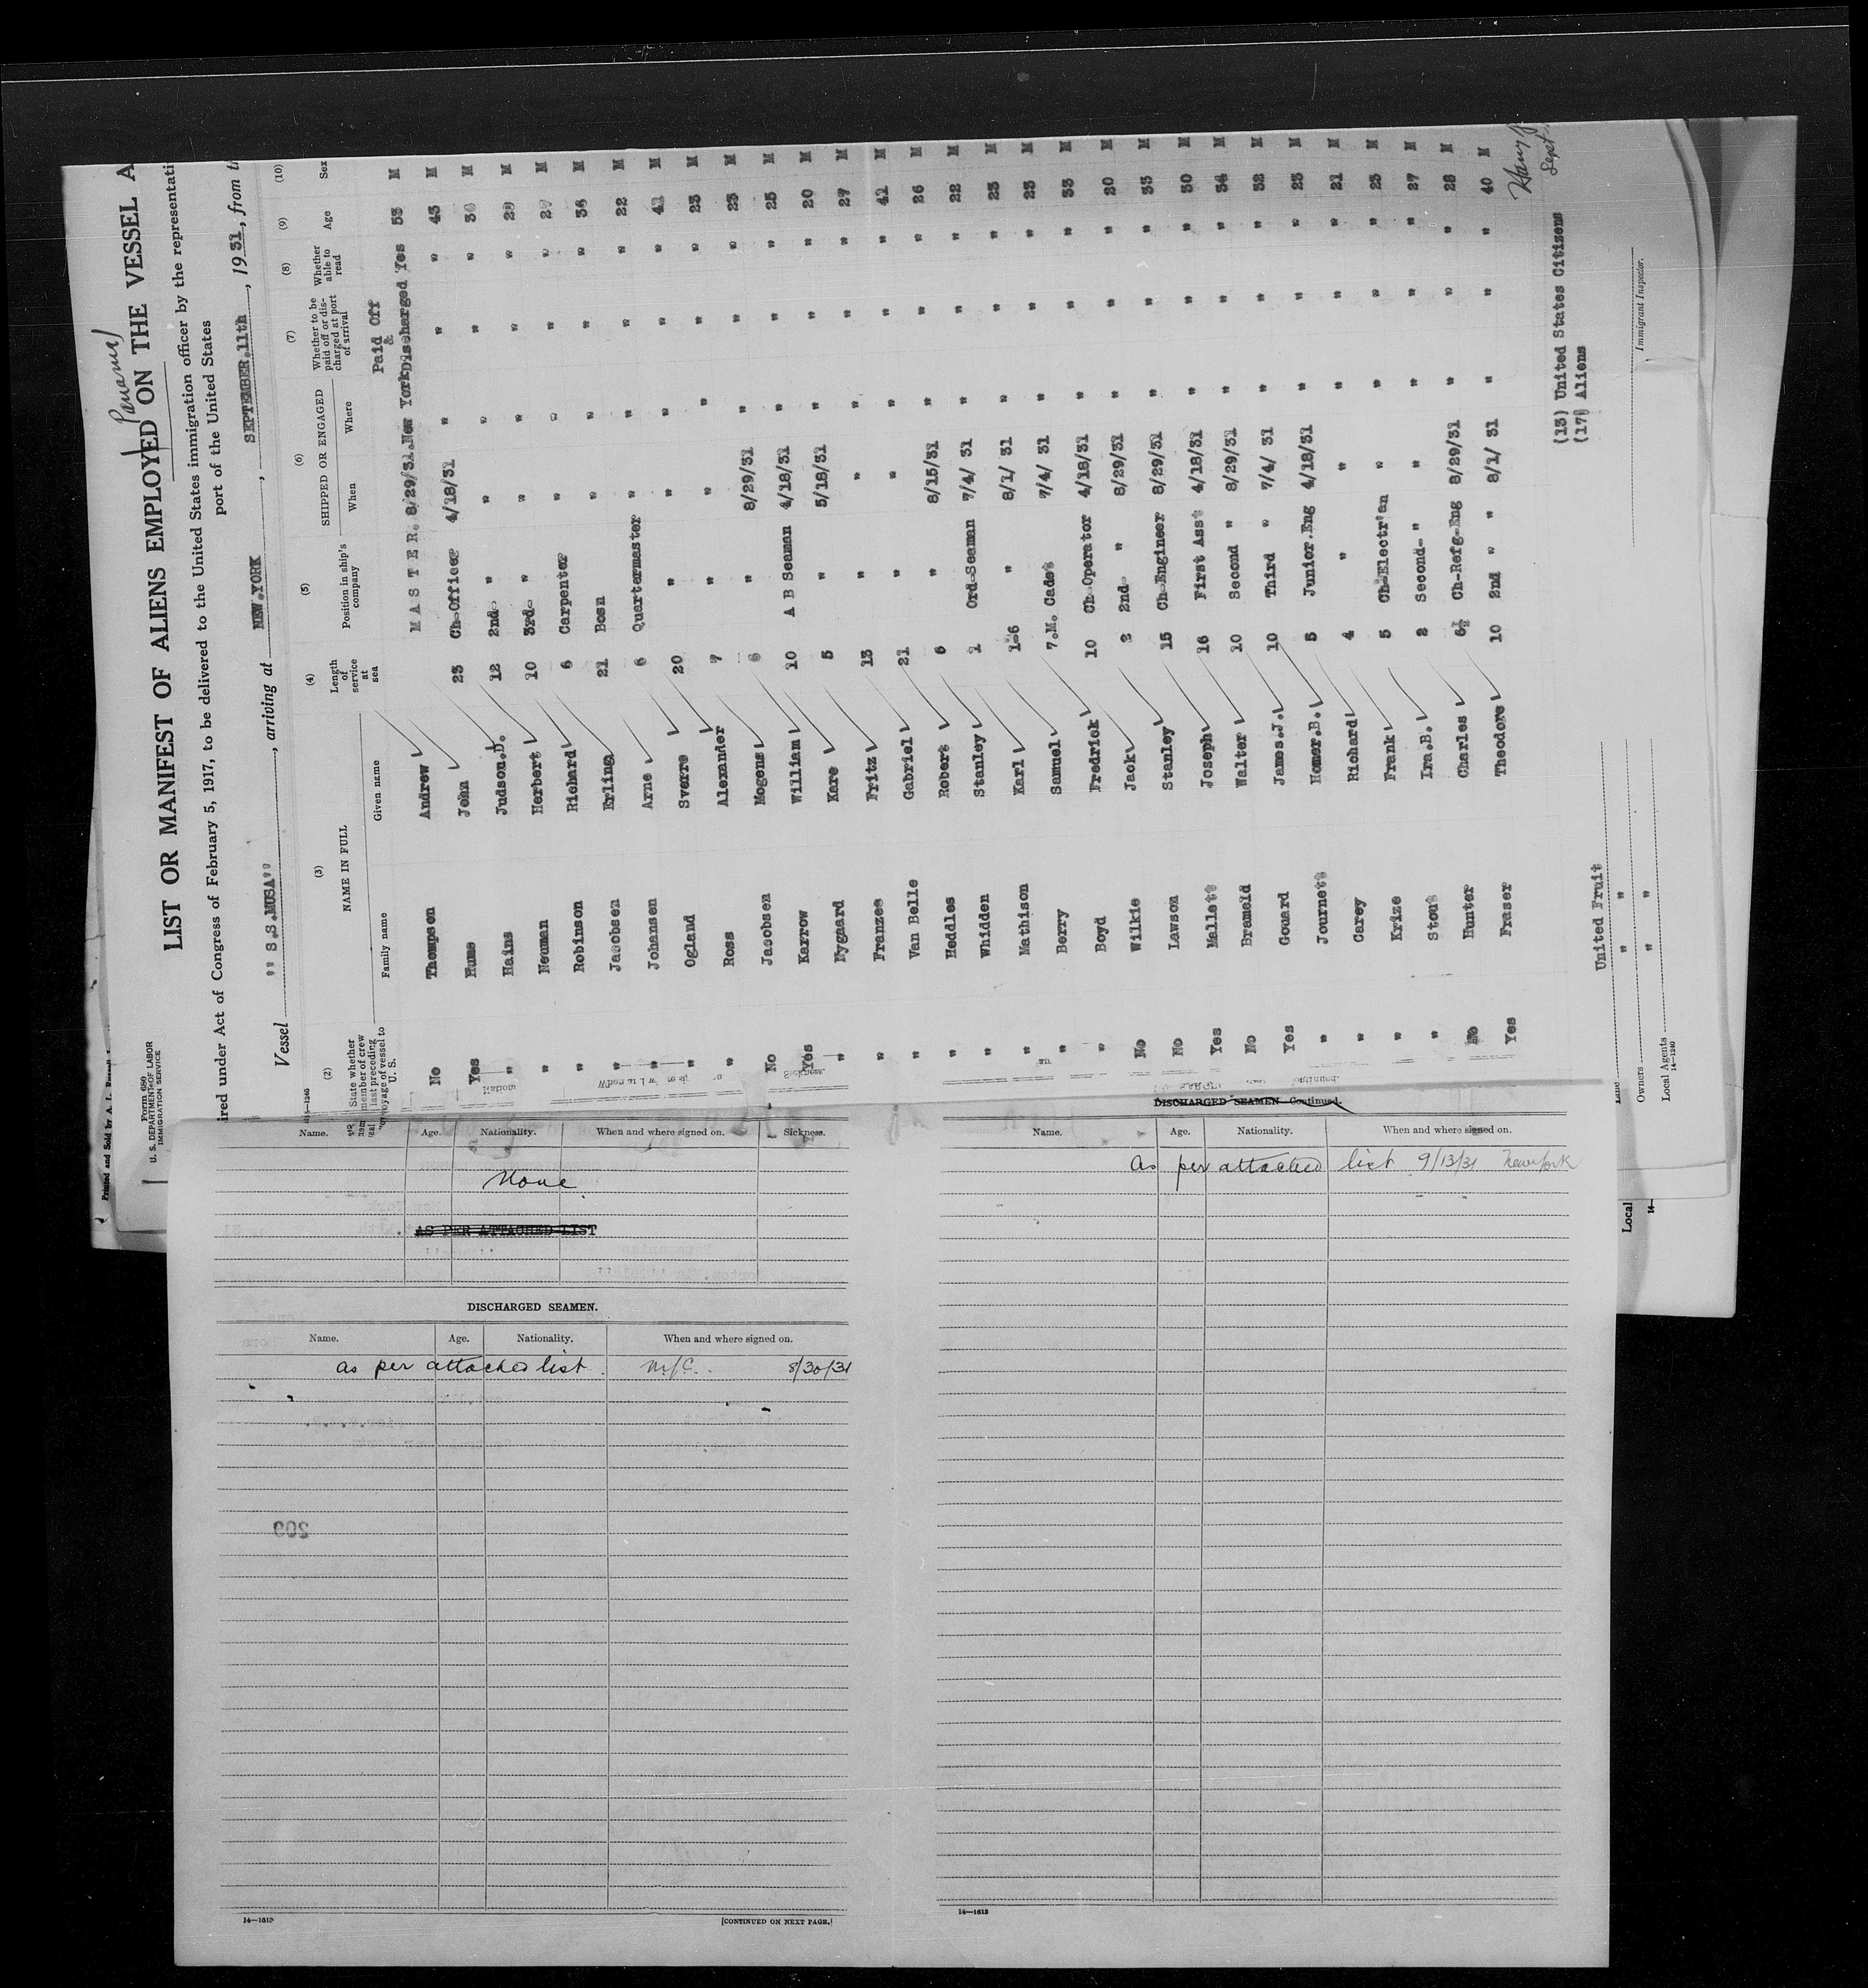 Panama
LIST OR MANIFEST OF ALIENS EMPLOYED ON THE VESSEL A
Form 680
U. S. DEPARTMENT OF LABOR
IMMIGRATION SERVICE
ired under Act of Congress of February 5, 1917, to be delivered to the United States immigration officer by the representati
port of the United States
Vessel " S.S.MUSA", arriving at NEW.YORK, SEPTEMBER.11th, 1931, from th
(2) (3) (4) (5) (6) (7) (8) (9) (10)
State whether member of crew last preceding voyage of vessel to U. S. NAME IN FULL Length of service at sea Position in ship's company SHIPPED OR ENGAGED Whether to be paid off or discharged at port of arrival Whether able to read Age Sex
Family name Given name When Where
Paid Off
&
No Thompson Andrew M A S T E R. 8/29/31. New York Discharged Yes 53 M
Yes Hume John 23 Ch-Officer 4/18/31 " " " 43 M
" Hains Judson.D. 12 2nd- " " " " " M
" Neuman Herbert 10 3rd- " " " " " 29 M
" Robinson Richard 6 Carpenter " " " " 27 M
" Jacobsen Erling 21 Bosn " " " " 34 M
" Johansen Arne 6 Quartermaster " " " " 22 M
" Ogland Sverre 20 " " " " " 41 M
" Ross Alexander 7 " " " " " 23 M
No Jacobsen Mogens 6 " 8/29/31 " " " 23 M
Yes Karrow William 10 A B Seaman 4/18/31 " " " 25 M
" Nygaard Kare 5 " 5/18/31 " " " 20 M
" Franzee Fritz 13 " " " " " 27 M
" Van Belle Gabriel 21 " " " " " 41 M
" Heddles Robert 6 " 8/15/31 " " " 26 M
" Whidden Stanley 1 Ord-Seaman 7/4/ 31 " " " 22 M
" Mathison Karl 1-6 " 8/1/ 31 " " " 23 M
" Berry Samuel 7.M. Cadet 7/4/ 31 " " " 23 M
" Boyd Fredrick 10 Ch-Operator 4/18/31 " " " 33 M
No Wilkie Jack 2 2nd- " 8/29/31 " " " 20 M
No Lawson Stanley 15 Ch-Engineer 8/29/31 " " " 33 M
Yes Mallett Joseph 16 First Asst 4/18/31 " " " 30 M
No Brameld Walter 10 Second " 8/29/31 " " " 34 M
Yes Gouard James.J. 10 Third " 7/4/ 31 " " " 32 M
" Journett Homer.B. 5 Junior.Eng 4/18/31 " " " 23 M
" Carey Richard 4 " " " " " 21 M
" Krize Frank 5 Ch-Electr'an " " " " 23 M
" Stout Ira.B. 2 Second- " " " " " 27 M
No Hunter Charles 6½ Ch-Refg-Eng 8/29/31 " " " 28 M
Yes Fraser Theodore 10 2nd " " 8/1/ 31 " " " 40 M
Harry
Sept
(13) United States Citizens
(17) Aliens
United Fruit
" "
Owners " "
Local Agents
14—1240
Immigrant Inspector.
Local
14—
Name. Age. Nationality. When and where signed on. Sickness.
None
AS PER ATTACHED LIST
DISCHARGED SEAMEN.
Name. Age. Nationality. When and where signed on.
as per attached list. N.Y.C. 8/30/31
209
14—1613
[CONTINUED ON NEXT PAGE.]
DISCHARGED SEAMEN—Continued.
Name. Age. Nationality. When and where signed on.
As per attached list 9/13/31 New York
14—1613